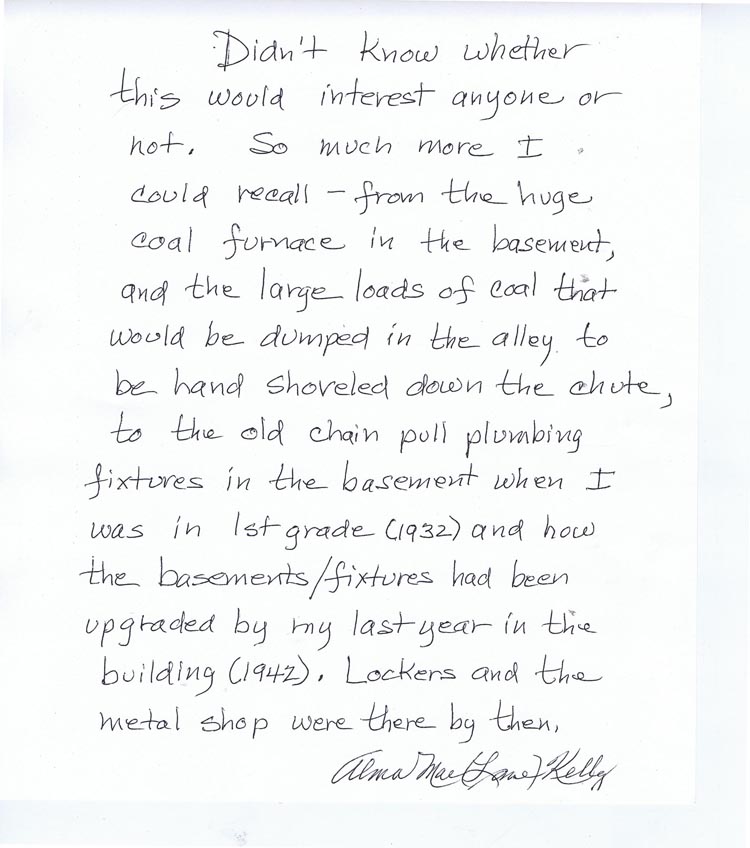 Didn't know whether
this would interest anyone or
not. So much more I
could recall – from the huge
coal furnace in the basement,
and the large loads of coal that
would be dumped in the alley to
be hand shoveled down the chute,
to the old chain pull plumbing
fixtures in the basement when I
was in 1st grade (1932) and how
the basements/fixtures had been
upgraded by my last year in the
building (1942). Lockers and the
metal shop were there by then.
Alma Mae (Lane) Kelly